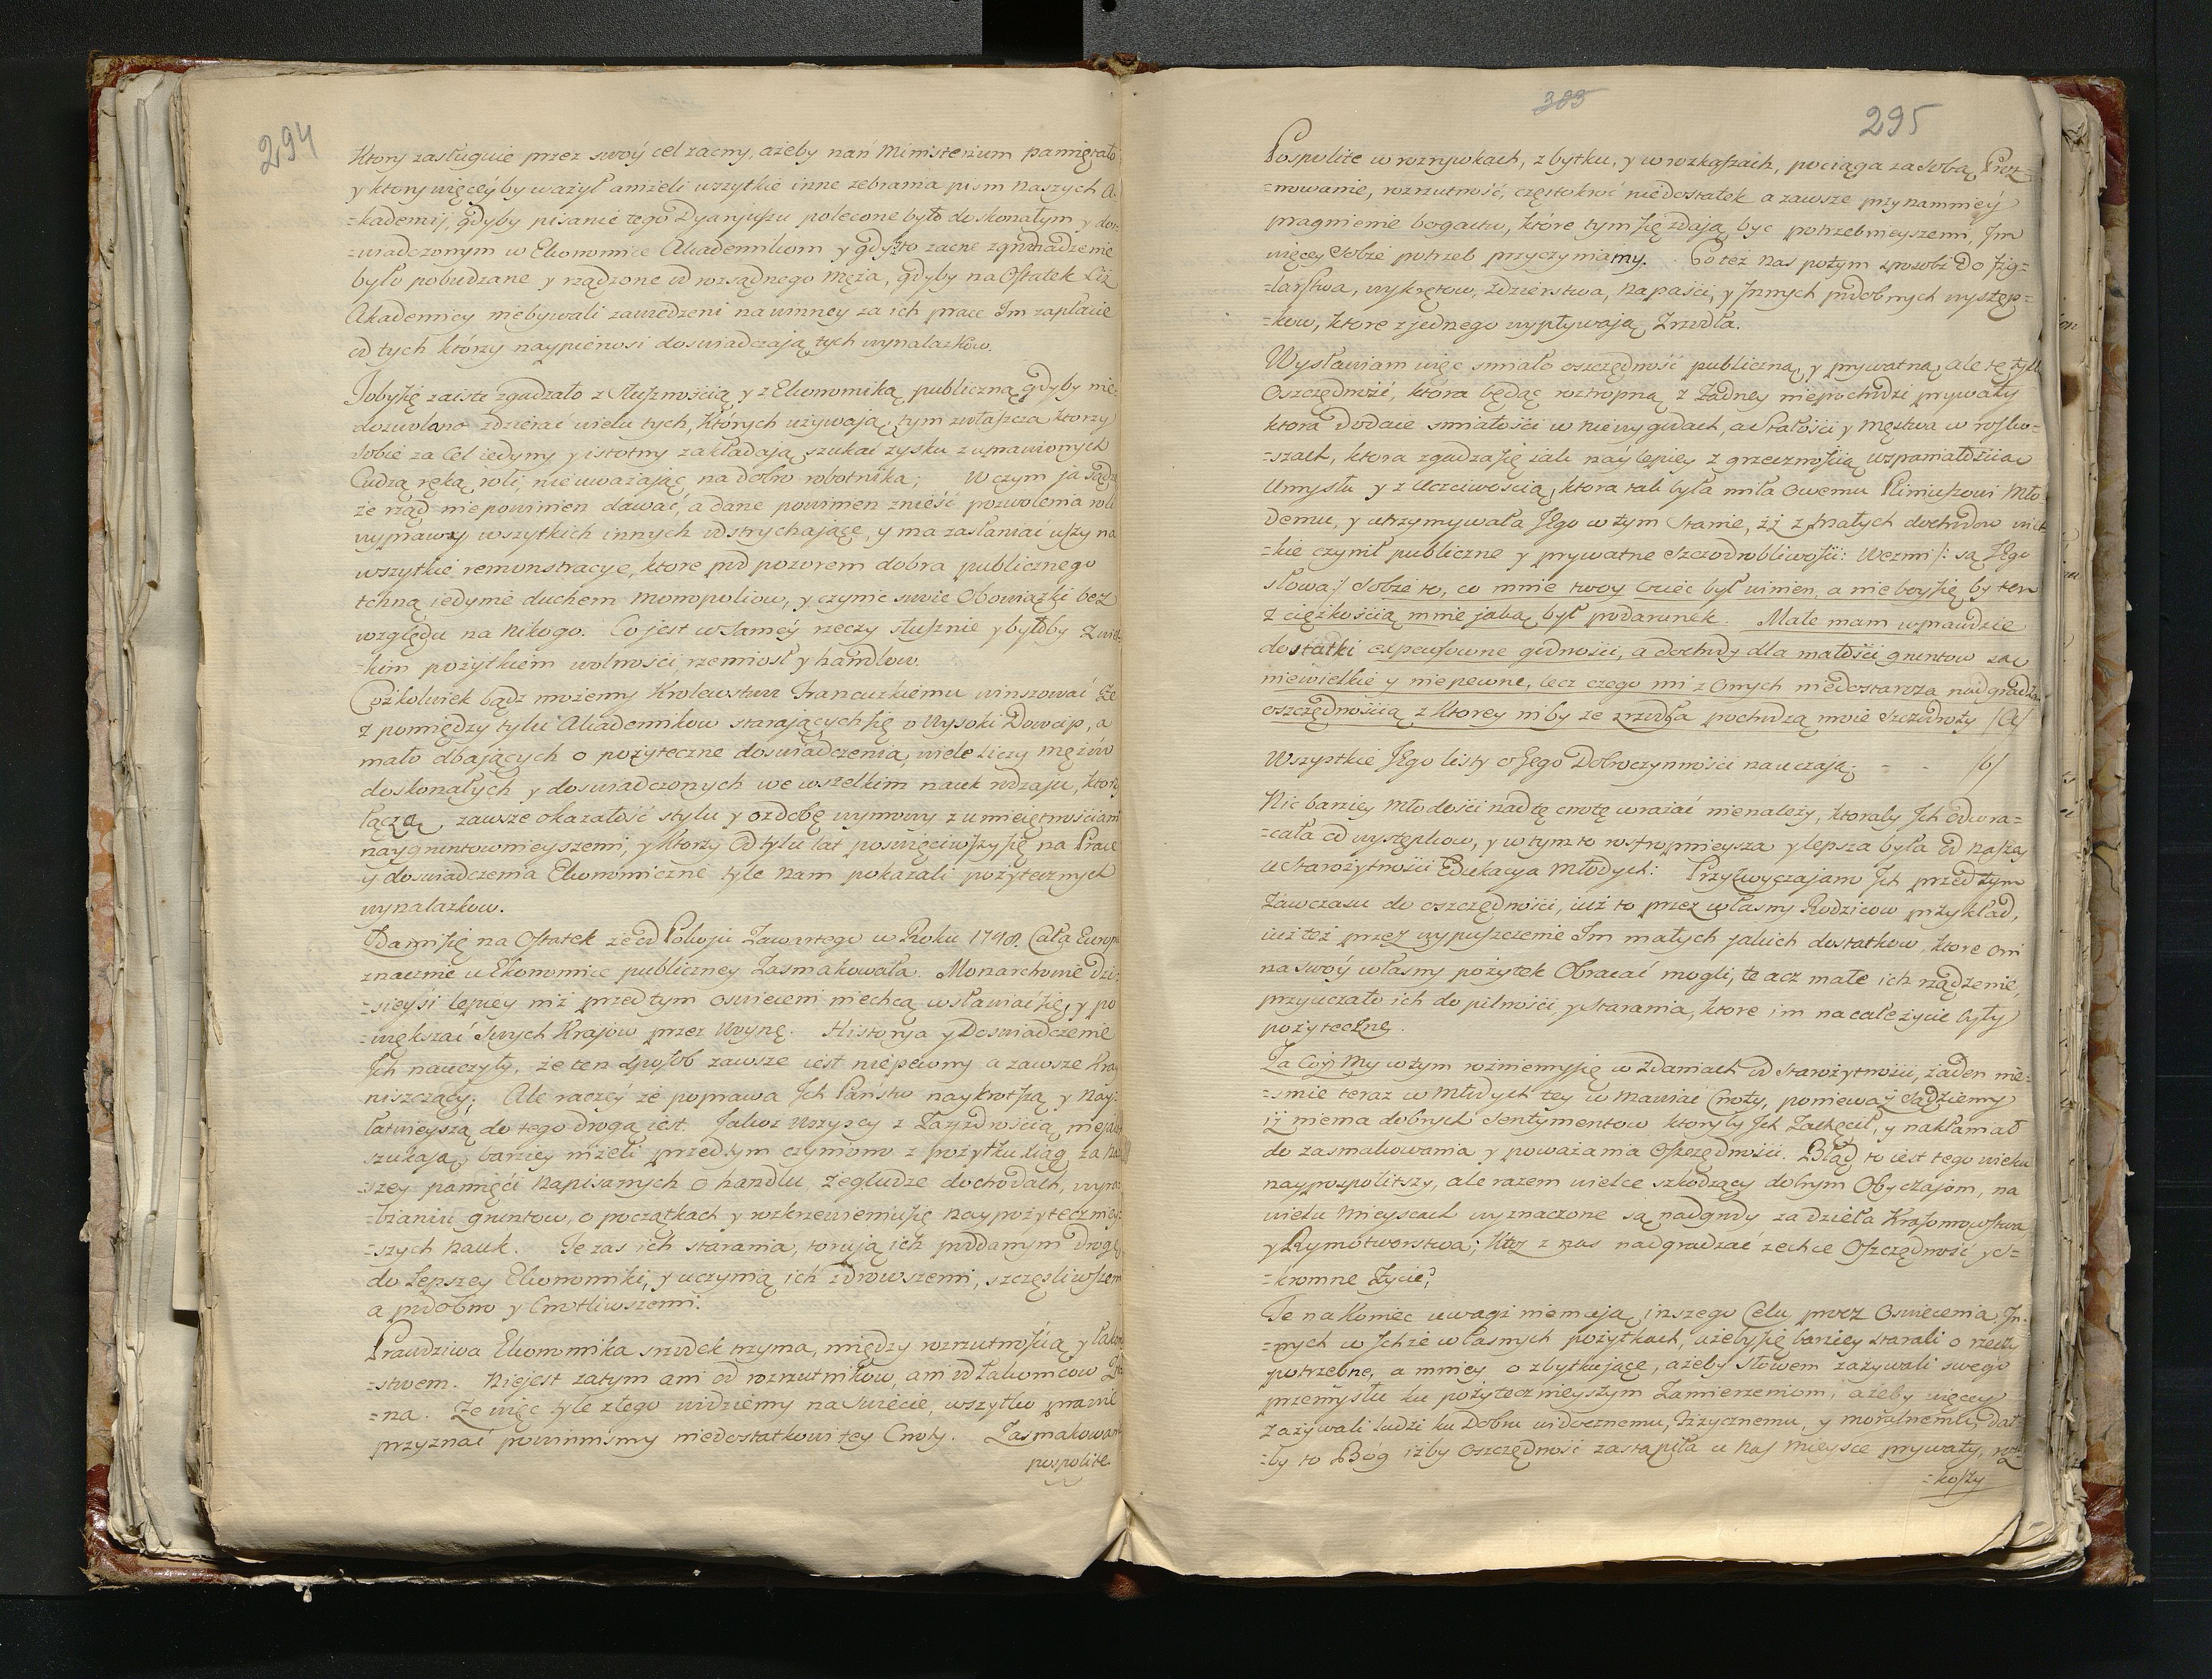 294
Ktory zasługuie przez swóy cel zacny, ażeby nań Ministerium pamiętało
y ktory więcéy by ważył aniżeli wszytkie inne zebrania pism Naszych A-
=kademij, gdyby pisanie tego Dyaryuszu polecone było doskonałym y do-
=wiadczonym w Ekonomice Akademikom y gdyby to zacne zgromadzenie
było pobudzane y rządzone od rozsądnego Męża, gdyby na Ostatek Ciż
Akademicy niebywali zawiedzeni na winney za ich prace Im zapłacie
od tych którzy naypierwsi doswiadczają tych wynalazkow.
Toby się zaiste zgadzało z Słusznością y z Ekonomiką publiczną gdyby nie-
dozwolano zdzierać wielu tych, Których używają, tym zwłaszcza ktorzy
sobie za Cel iedyny y istotny zakładają szukać zysku z uprawionych
Cudzą ręką roli, nieuważając na dobro robotnika; W czym ja sądzę
że rząd niepowinien dawać, a dane powinien znieść pozwolenia roli
wyprawy wszytkich innych odstrychające, y ma zasłaniać uszy na
wszytkie remonstracye, ktore pod pozorem dobra publicznego
tchną iedynie duchem monopoliow, y czynic swoie Obowiązki bez
względu na Nikogo. Co jest w samey rzeczy słusznie y byłoby z wiel-
=kim pożytkiem wolności, rzemiosł y handlow.
Cożkolwiek bądz możemy Krolewstwu Francuzkiemu winszować że
z pomiędzy tylu Akademikow starających się o Wysoki Dowcip, a
mało dbających o pożyteczne doswiadczenia, wiele liczy mężów
doskonałych y doswiadczonych we wszelkim nauk rodzaju, ktorzy
łączą zawsze okazałość stylu y ozdobę wymowy z umieiętnościami
naygruntownieyszemi, y Ktorzy Od tylu lat poswięciwszy się na Prace
y doswiadczenia Ekonomiczne tyle nam pokazali pożytecznych
wynalazkow.
Zdami się na Ostatek że od Pokoju Zawartego w Roku 1748. Cała Europa
znacznie w Ekonomice publiczney Zasmakowała. Monarchowie dzi-
=sieysi lepiey niż przed tym oswieceni niechcą wsławiać się, y po
=większać Swych Krajow przez Woynę. Historya y Doswiadczenie
Ich nauczyły, że ten Sposob zawsze iest niepewny a zawsze Kray
niszczący; Ale raczey że poprawa Ich Państw naykrotszą y nay-
łatwieyszą do tego drogą iest. Jakoż Wszyscy z Zazdrością niejaką
szukają, barziey niżeli przed tym czyniono z pożytku xiąg za na-
=szey pamięci Napisanych o handlu, żegludze dochodach, wyra-
=bianiu gruntow, o początkach y rozkrzewieniu się Naypożyteczniey-
=szych Nauk. Te zas ich starania, torują ich poddanym drogę
do Lepszey Ekonomiki, y uczynią ich zdrowszemi, szczęsliwszemi
a podobno y Cnotliwszemi.
Prawdziwa Ekonomika srzodek trzyma, między rozrzutnością y łakom-
=stwem. Niejest zatym ani od rozrzutnikow, ani od Łakomcow
=na. Że więc tyle złego widziemy na Swiecie, wszytko prawie
przyznać powinnismy niedostatkowi tey Cnoty. Zasmakowanie
pospolite
303
295
Pospolite w rozrywkach, zbytku, y w rozkaszach, pociąga za Sobą Proż-
=nowanie, rozrzutność, częstokroć niedostatek a zawsze przynammiey
pragnienie bogactw, które tym się zdają byc potrzebnieyszemi, Im
więcey Sobie potrzeb przyczyniamy. Co tez nas potym sposobi Do fig-
=larstwa, wykrętow, zdzierstwa, Napaści, y Innych podobnych występ-
=kow, ktore z jednego wypływają Zrzodła.
Wysławiam więc smiało oszczędność publiczną, y prywatną, ale tę tylko
Oszczędność, ktora będąc roztropną z Żadney niepochodzi prywaty
ktora Dodaie smiałości w niewygodach, a Stałości y Męstwa w rosko-
=szach, ktora zgadza się jak naylepiey z grzecznością wspaniałością
Umysłu y z Uczciwoscią, ktora tak była miła owemu Pliniuszowi Mło-
demu, y utrzymywała Jego w tym Stanie, iż z małych dochodow wiel-
=kie czynił publiczne y prywatne Szczodrobliwości: Wezmi /: są Jego
słowa:/ Sobie to, co mnie twoy Ociec był winien, a nie boy się by ten
z ciężkością mnie jaką był podarunek. Małe mam wprawdzie
dostatki expensowne godności, a dochody dla małości gruntow są
niewielkie y niepewne, lecz czego mi z Onych niedostarcza nadgradzam
oszczędnością z Ktorey niby ze zrzodła pochodzą moie Szczodroty /a/
Wszystkie Jego listy o Jego Dobroczynności nauczają; - - /b/
Nic barziey Młodości nad tę cnotę wrażać nienależy, ktoraby Ich odwra-
=cała od występkow, y w tym to rostropnieysza y lepsza była od naszey
w Starożytności Edukacya Młodych: Przyzwyczajano Ich przed tym
Zawczasu do oszczędności, iuż to przez własny Rodzicow przykład,
iuż też przez wypuszczenie Im małych jakich dostatkow, ktore oni
na swóy własny pożytek Obracać mogli, te acz małe ich rządzenie,
przyuczało ich do pilności, y Starania, ktore im na całe życie były
pożyteczne.
Za Coż My w tym rożniemy się w Zdaniach od Starożytności, żaden nie-
=smie teraz w Młodych tey w mawiać Cnoty, ponieważ Sądziemy
iż niema dobrych Sentymentow ktoryby Ich Zachęcił, y nakłaniał
do zasmakowania y poważania Oszczędności. Błąd to iest tego wieku
naypospolitszy, ale razem wielce szkodzący dobrym Obyczajom, na
wielu Mieyscach wyznaczone są nadgrody za dzieła Krasomowstwa
y Rymotworstwa; Któż z nas nadgradzać zechce Oszczędność y s-
=kromne Życie?
Te nakoniec uwagi niemają inszego Celu procz Oswiecenia In-
=nych w Ichże własnych pożytkach, ażeby się barziey starali o rzeczy
potrzebne, a mniey o zbytkujące, ażeby słowem zażywali swego
przemysłu ku pożytecznieyszym Zamierzeniom; ażeby więcey
Zażywali ludzi ku Dobru widocznemu, fizycznemu, y moralnemu, dał-
=by to Bóg iżby Oszczędność zastąpiła u Nas mieysce prywaty, roz-
=koszy